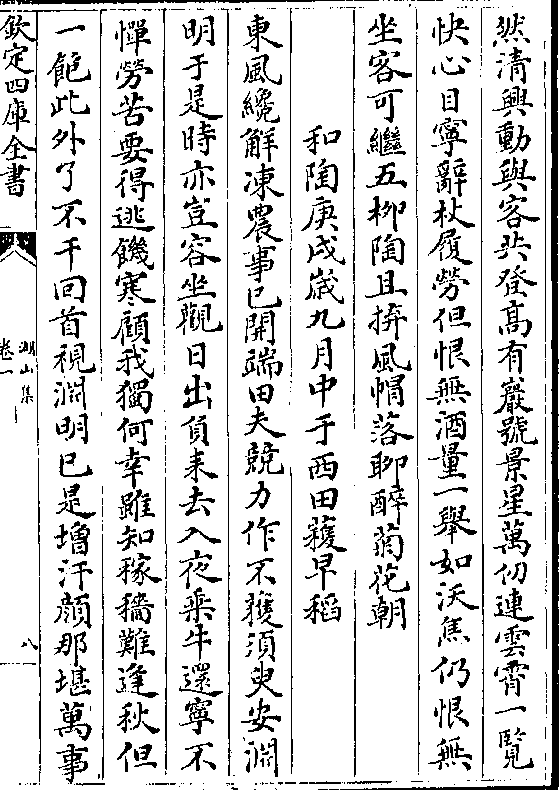 然清興動與客共登髙有巖號景星萬仞連雲霄一覽
快心目寧辭杖履勞但恨無酒量一舉如沃焦仍恨無
坐客可繼五栁陶且拚風帽落聊醉菊花朝
和陶庚戌嵗九月中于西田穫早稻
東風纔解凍農事已開端田夫競力作不獲須臾安淵
明于是時亦豈容坐觀日出負耒去入夜乘牛還寧不
憚勞苦要得逃饑寒顧我獨何幸雖知稼穡難逢秋但
一飽此外了不干回首視淵明已是增汗顔那堪萬事
欽定四庫全書
湖山集
卷一
八